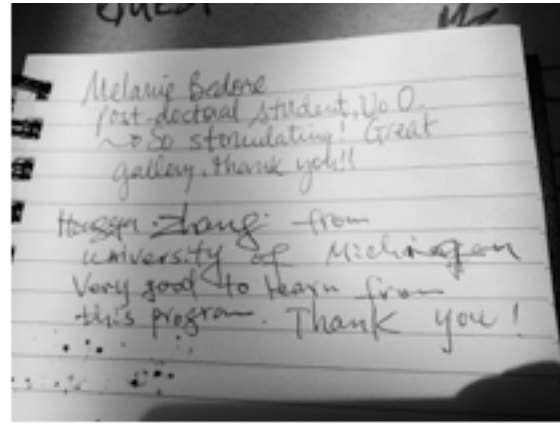 GUEST
Melanie Bedore
Post-doctoral student, U o O.
~→ So stimulating! Great
gallery, thank you!!
Zhang from
University of Michigan
Very good to learn from
this program. Thank you!